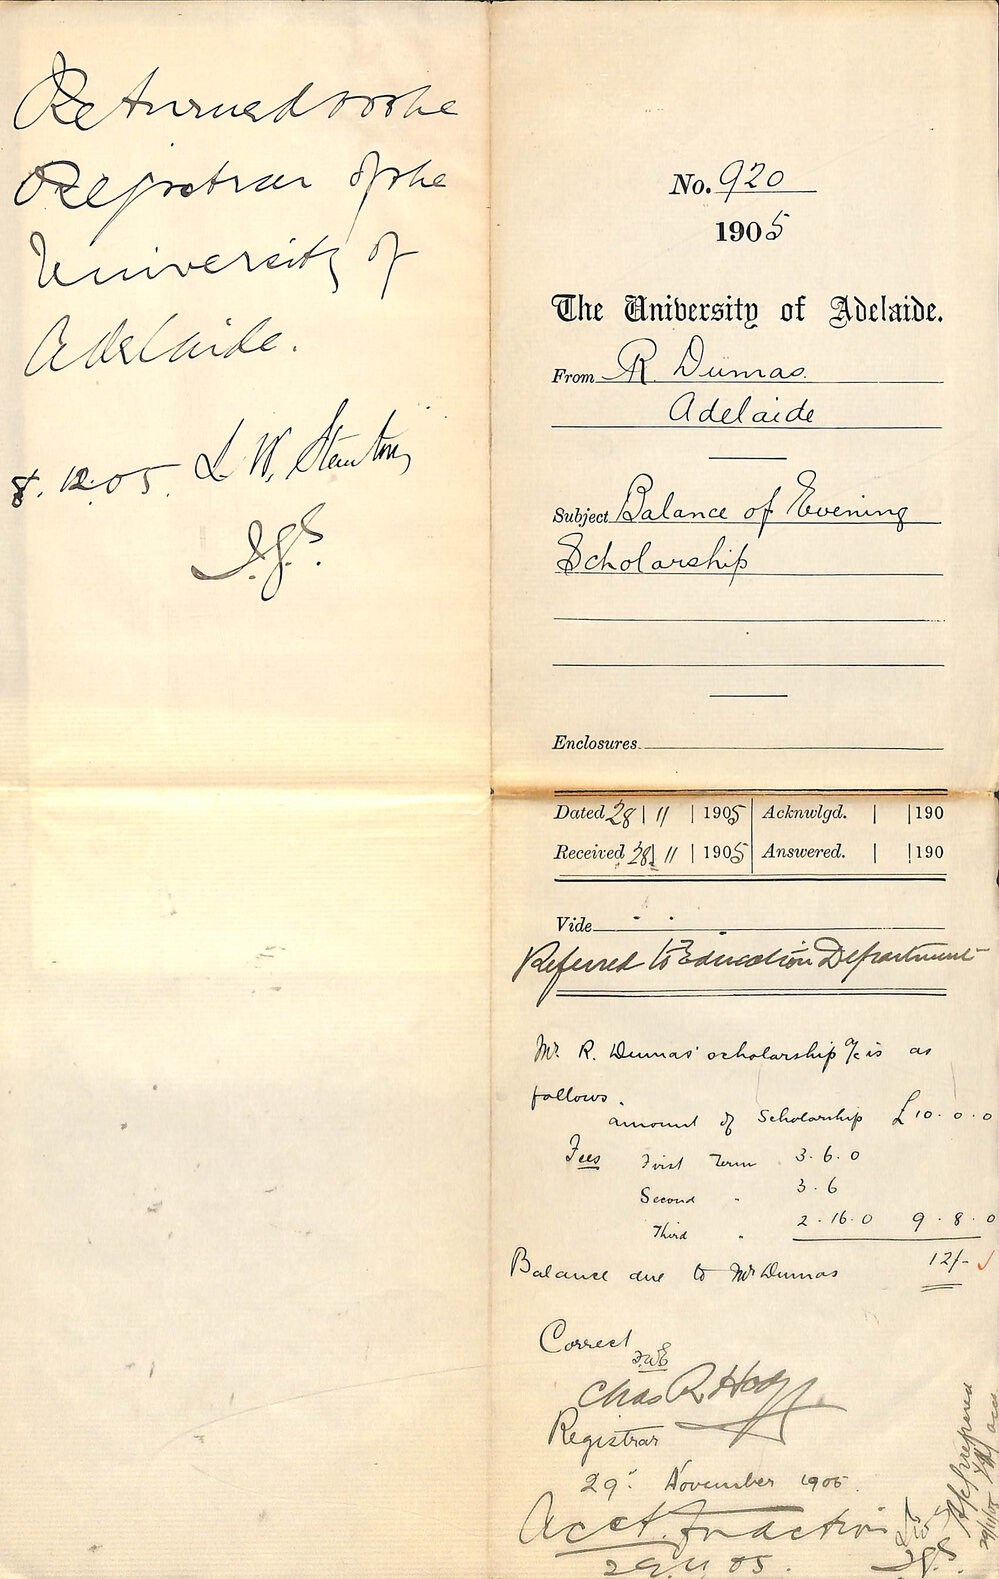 Returned to the
Registrar of the
University of
Adelaide.
8.12.05. L W. Stanton
No. 920
1905
The University of Adelaide.
From R. Dumas
Adelaide
Subject Balance of Evening
Scholarship
Enclosures
Dated 28 | 11 | 1905 | Acknwlgd. | | 190
Received 28 | 11 | 1905 | Answered. | | 190
Vide
Referred to Education Department
Mr. R. Dumas' scholarship a/c is as
follows.
amount of Scholarship £10.0.0
Fees First Term 3.6.0
Second " 3.6
Third " 2.16.0 9.8.0
Balance due to Mr Dumas 12/-
Correct
Chas R Hodge
Registrar
29. November 1905.
Acct. for action
29.11.05.